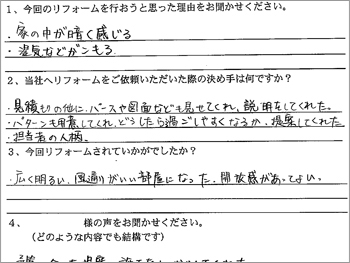 1、今回のリフォームを行おうと思った理由をお聞かせください。
・家の中が暗く感じる
・湿気などがこもる
2、当社へリフォームをご依頼いただいた際の決め手は何ですか？
・見積もりの他に、パースや図面なども見せてくれ、説明をしてくれた。
・パターンも用意してくれ、どうしたら過ごしやすくなるか、提案してくれた
・担当者の人柄。
3、今回リフォームされていかがでしたか？
・広く明るい、風通りがいい部屋になった。開放感があってよい。
4、
様の声をお聞かせください。
（どのような内容でも結構です）